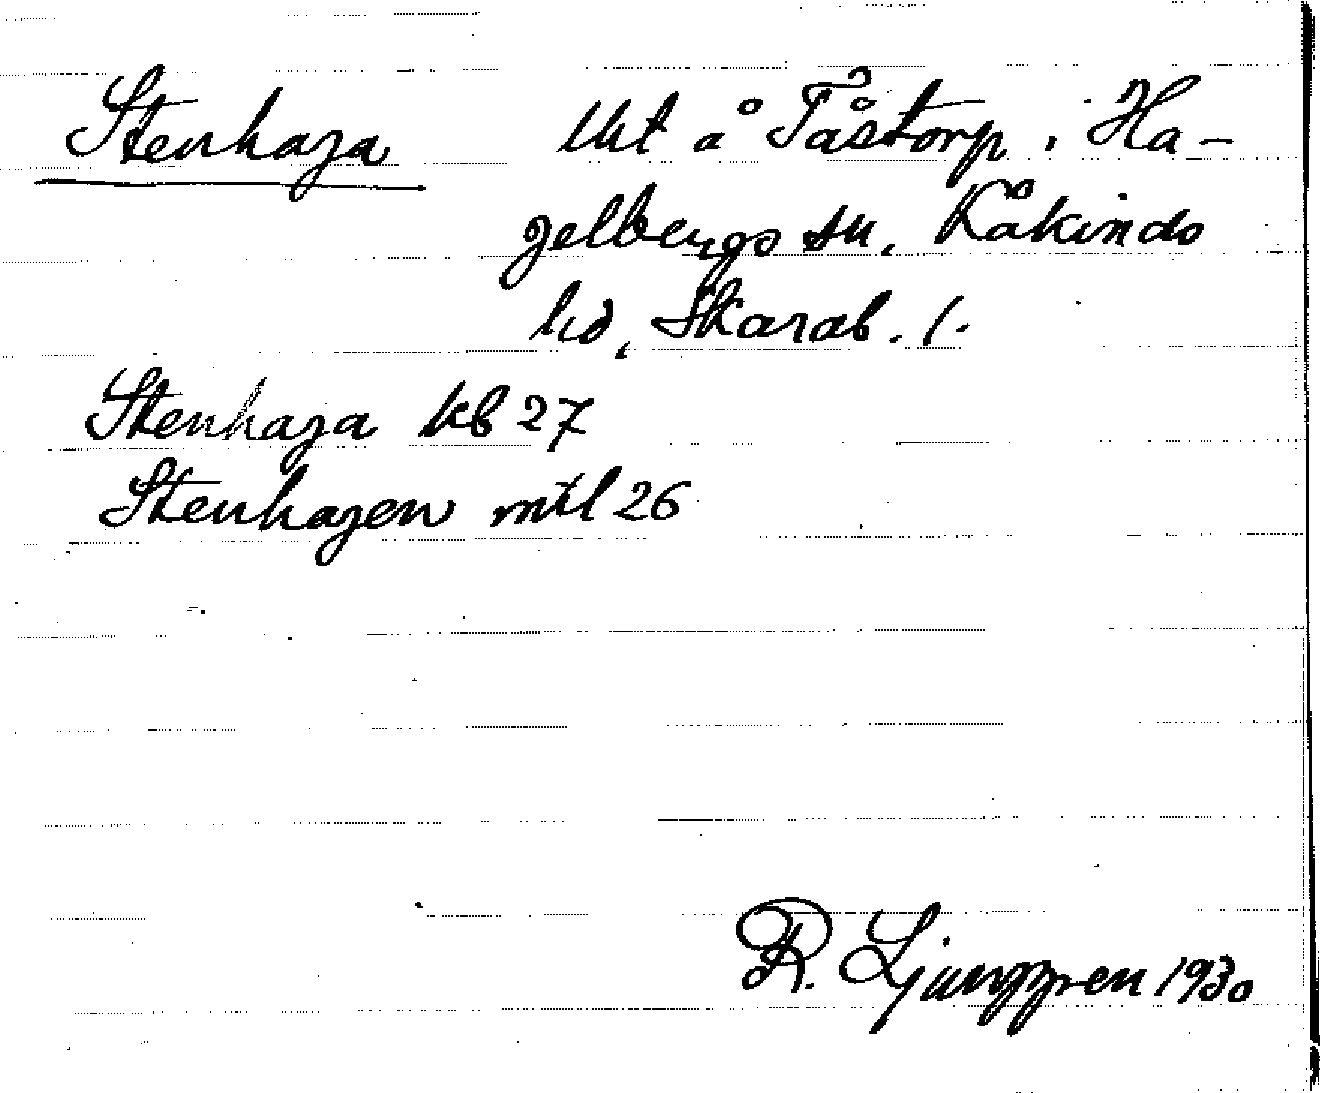 Stenhaga lht å Tåstorp i Ha-
gelbergs sn, Kåkinds
hd, Skarab. l.
Stenhaga kb 27
Stenhagen mtl 26
R. Ljunggren 1930